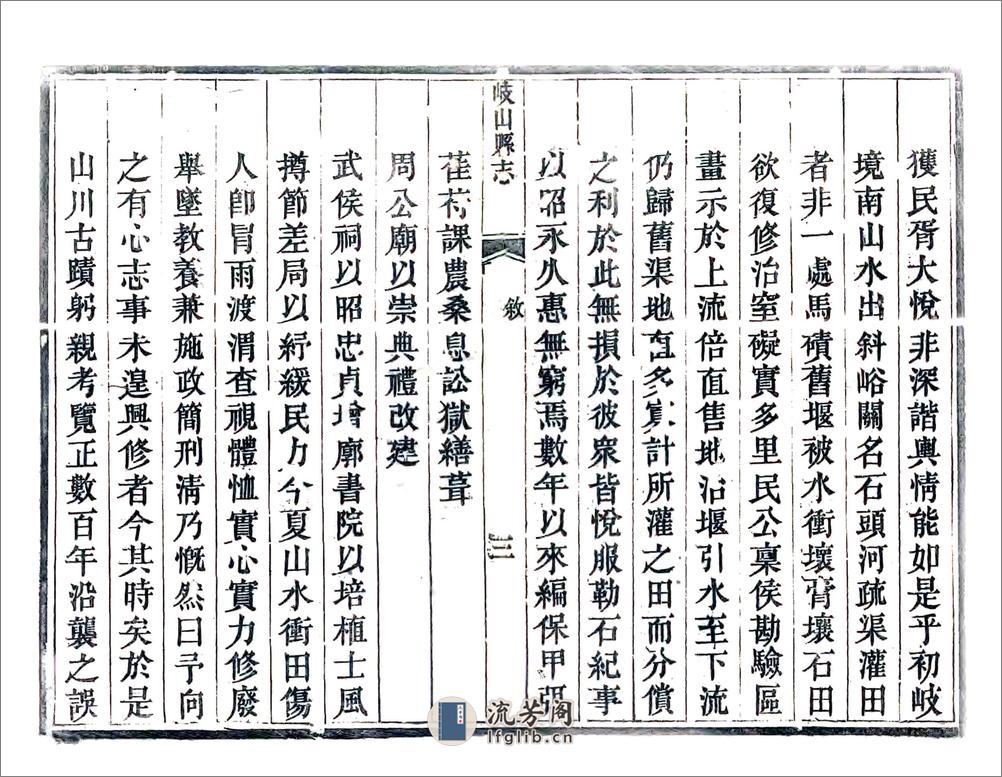 獲民胥大悅非深諧輿情能如是乎初岐
境南山水出斜峪關名石頭河疏渠灌田
者非一處馬磧舊堰被水衝壞膏壤石田
欲復修治窒礙實多里民公稟侯勘驗區
畫示於上流倍值售地沿堰引水至下流
仍歸舊渠地值多寡計所灌之田而分償
之利於此無損於彼衆皆悅服勒石紀事
以昭永久惠無窮焉數年以來編保甲弭
岐山縣志
敘
三
萑苻課農桑息訟獄繕葺
周公廟以崇典禮改建
武侯祠以昭忠貞增廓書院以培植士風
撙節差局以紓緩民力今夏山水衝田傷
人卽冒雨渡渭查視體恤實心實力修廢
舉墜教養兼施政簡刑淸乃慨然曰予向
之有心志事未遑興修者今其時矣於是
山川古蹟躬親考覽正數百年沿襲之誤
流芳阁
lfglib.cn